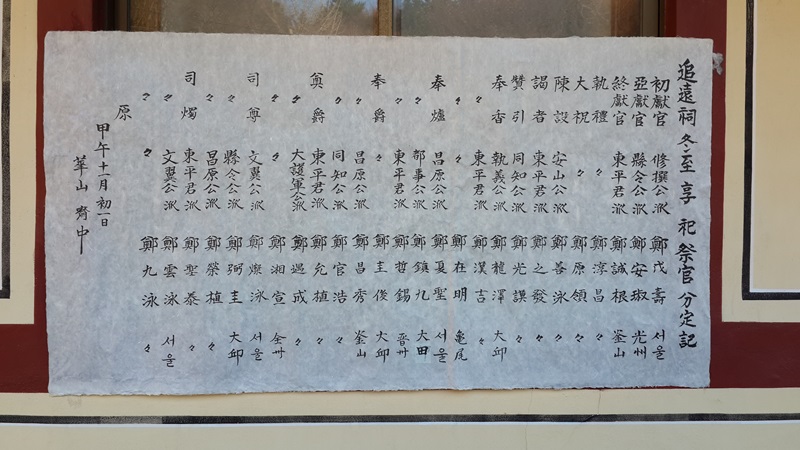 追遠祠 冬至 享 祀 祭官 分定記
初獻官 修撰公派 鄭茂壽 서울
亞獻官 縣令公派 鄭安琡 光州
終獻官 東平君派 鄭誠根 釜山
執禮 〃 鄭淳昌 〃
大祝 〃 鄭原領 〃
陳設 安山公派 鄭善泳 〃
謁者 東平君派 鄭之發 〃
贊引 同知公派 鄭光謨 〃
奉香 執義公派 鄭龍澤 大邱
〃 東平君派 鄭漢吉 〃
〃 〃 鄭在明 龜尾
奉爐 昌原公派 鄭夏聖 서울
〃 都事公派 鄭鎭九 大田
〃 東平君派 鄭哲錫 晋州
奉爵 〃 鄭圭俊 大邱
〃 昌原公派 鄭昌秀 釜山
〃 同知公派 鄭官浩 〃
奠爵 東平君派 鄭允植 〃
〃 大護軍公派 鄭遇成 〃
〃 〃 鄭湘宣 全州
司尊 文翼公派 鄭燦泳 서울
〃 縣令公派 鄭弼圭 大邱
〃 昌原公派 鄭榮植 〃
司燭 東平君派 鄭聖泰 〃
〃 文翼公派 鄭雲泳 서울
〃 〃 鄭九泳 〃
原
甲午十一月 初一日
華山 齊中